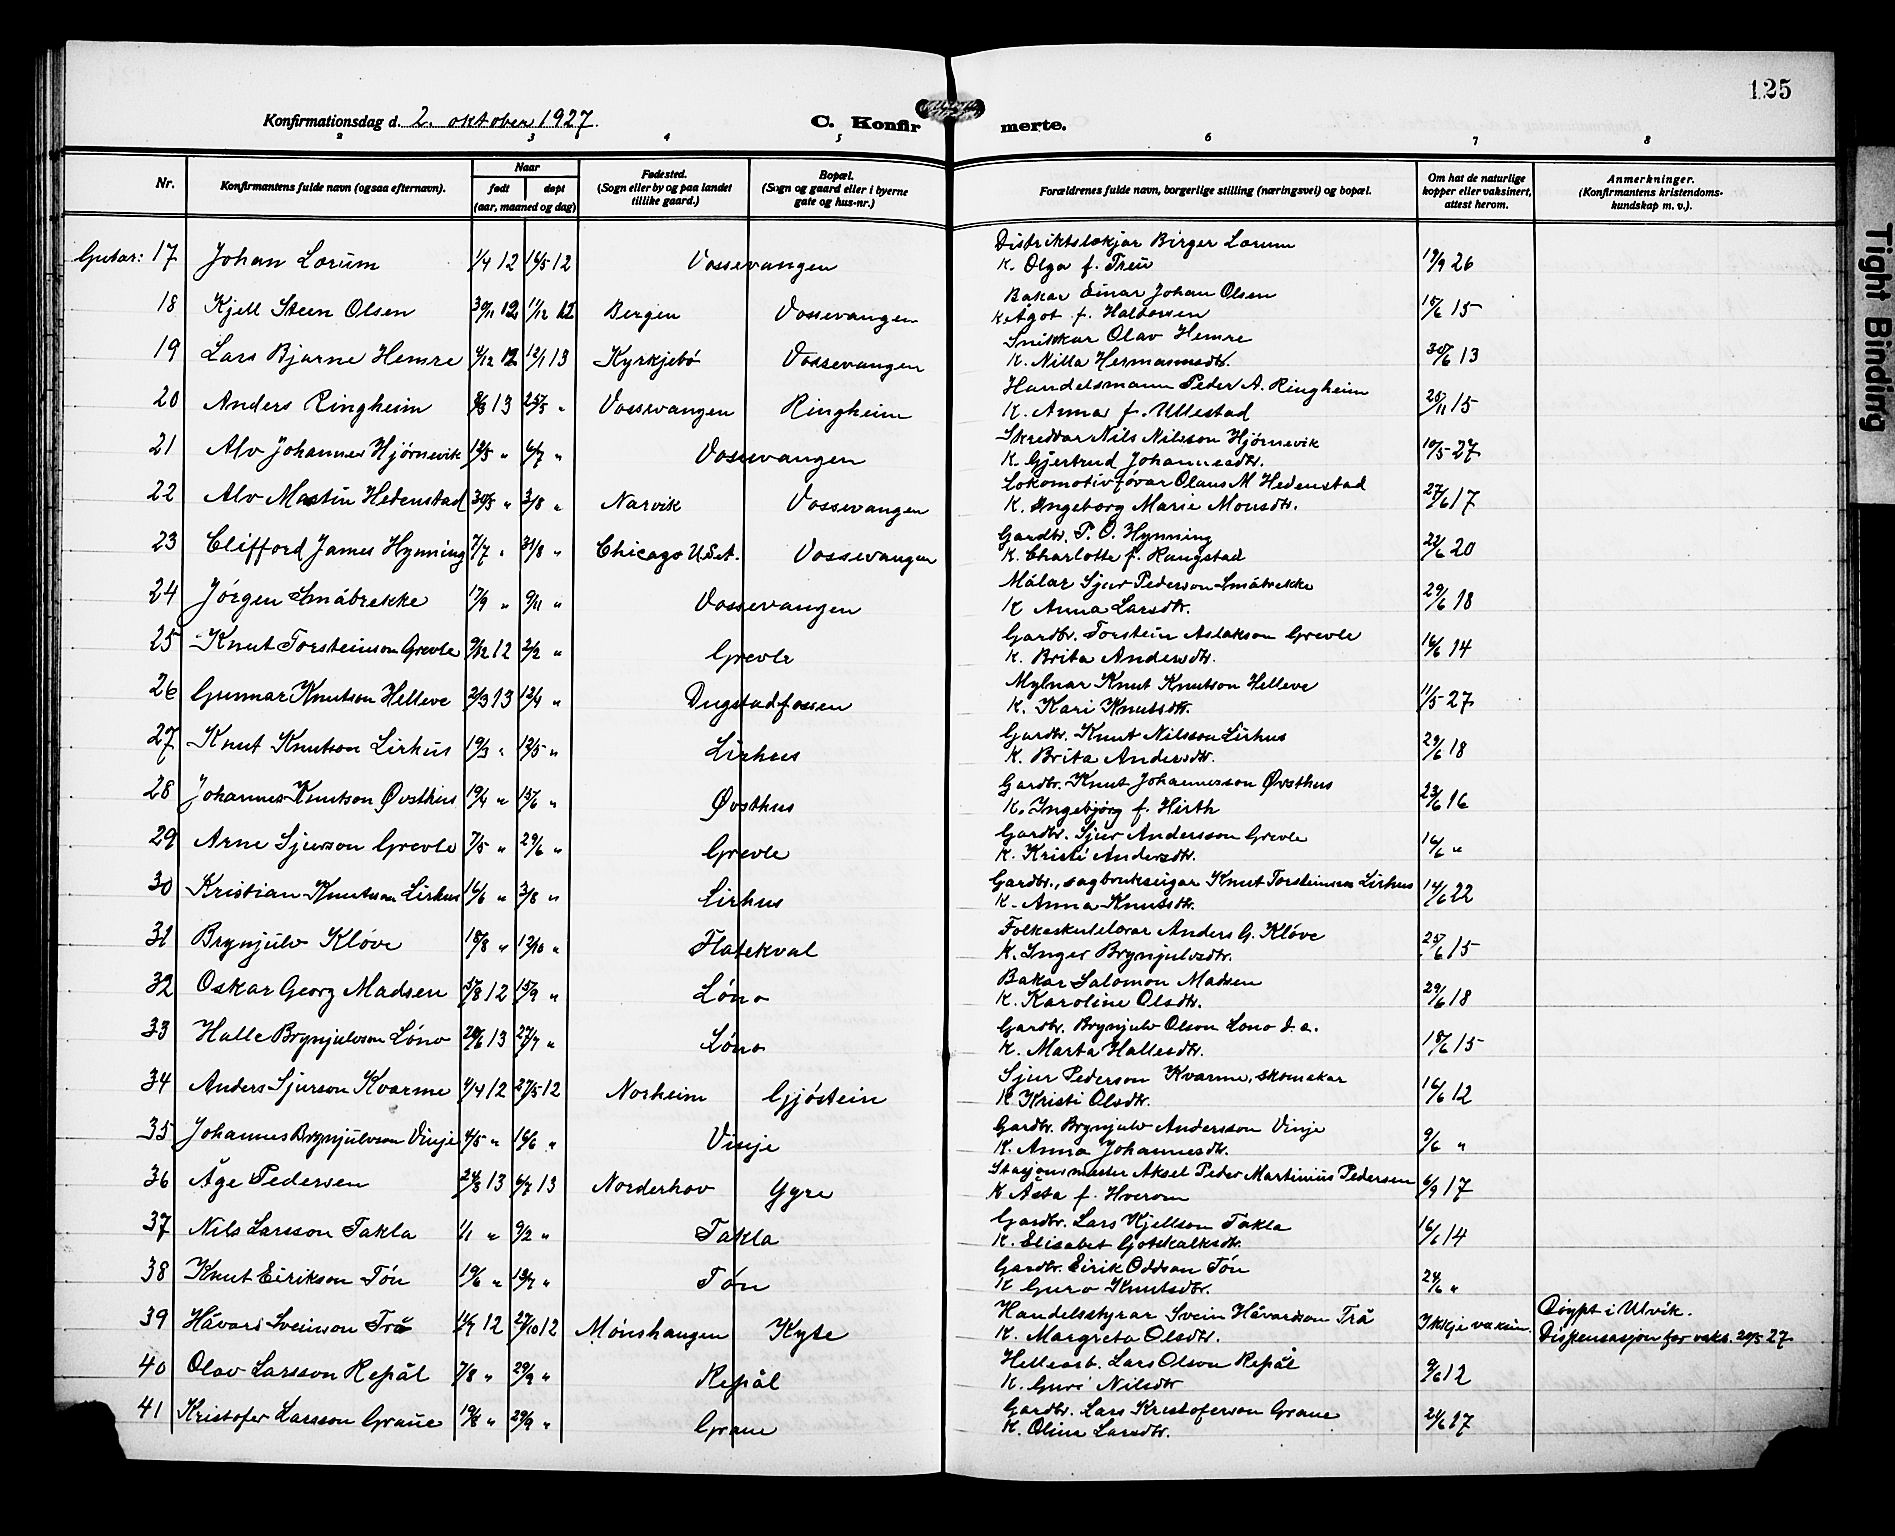 125
Konfirmationsdag d. 2. oktober 1927.
C. Konfirmerte.
2 3 4 5 6 7 8
Nr. Konfirmantens fulde navn (ogsaa efternavn). Naar født døpt (aar, maaned og dag) Fødested. (Sogn eller by og paa landet tillike gaard.) Bopæl. (Sogn og gaard eller i byerne gate og hus-nr.) Forældrenes fulde navn, borgerlige stilling (næringsvei) og bopæl. Om hat de naturlige kopper eller vaksinert, attest herom. Anmerkninger. (Konfirmantens kristendoms-kundskap m. v.).
Gutar: 17 Johan Lorum 1/4 12 16/5 12 Vossevangen Distriktslækjar Birger Lorum
K. Olga f. Treu 19/9 26
18 Kjell Steen Olsen 30/11 12 11/12 12 Bergen Vossevangen Bakar Einar Johan Olsen
K. Ågot f. Haldorsen 15/6 15
19 Lars Bjarne Hemre 4/12 12 12/1 13 Kyrkjebö Vossevangen Snikkar Olav Hemre
K. Nilla Hermannsdtr. 30/6 13
20 Anders Ringheim 9/3 13 25/5 " Vossevangen Ringheim Handelsmann Peder A. Ringheim
K. Anna f. Ullestad 25/11 15
21 Alv Johannes Hjörnevik 12/5 " 6/7 " Vossevangen Skreddar Nils Nilsson Hjørnevik
K. Gjertrud Johannesdtr. 10/5-27
22 Alv Mastin Hedenstad 30/5 " 3/8 " Narvik Vossevangen Lokomotivförar Olaus M Hedenstad
K. Ingeborg Marie Monsdtr. 27/6 17
23 Clifford James Hynning 7/7 " 31/8 " Chicago U.St. Vossevangen Gardbr. P. O. Hynning
K. Charlotte f. Rangstad 22/6 20
24 Jörgen Småbrekke 17/9 " 9/11 " Vossevangen Målar Sjur Pederson Småbrekke
K Anna Larsdtr. 29/6 18
25 Knut Torsteinson Grevle 9/12 12 2/2 " Grevle Gardbr. Torstein Aslakson Grevle
K. Brita Andersdtr. 16/6 14
26 Gunnar Knutson Helleve 2/3 13 13/4 " Dugstadfossen Mylnar Knut Knutson Helleve
K. Kari Knutsdtr. 11/5-27
27 Knut Knutson Lirhus 19/3 " 12/5 " Lirhus Gardbr. Knut Nilsson Lirhus
K. Brita Andersdtr. 29/6 18
28 Johannes Knutson Øvsthus 19/4 " 15/6 " Øvsthus Gardbr. Knut Johannesson Øvsthus
K. Ingebjörg f. Hirth 23/6 16
29 Arne Sjurson Grevle 7/5 " 29/6 " Grevle Gardbr. Sjur Andersson Grevle
K. Kristi Andersdtr. 16/6 "
30 Kristian Knutson Lirhus 16/6 " 3/8 " Lirhus Gardbr., sagbrukseigar Knut Torsteinson Lirhus
K. Anna Knutsdtr. 14/6 22
31 Brynjulv Klöve 18/8 " 12/10 " Flatekval Folkeskulelærar Anders G. Klöve
K. Inger Brynjulvsdtr. 25/6 15
32 Oskar Georg Madsen 15/8 12 15/9 " Löno Bakar Salomon Madsen
K. Karoline Olsdtr. 29/6 18
33 Halle Brynjulvson Löno 20/6 13 27/7 " Löno Gardbr. Brynjulv Olson Lono d. a.
K. Marta Hallesdtr. 18/6 15
34 Anders Sjurson Kvarme 4/4 12 27/5 12 Norheim Gjöstein Sjur Pederson Kvarme, skomakar
K. Kristi Olsdtr. 16/6 12
35 Johannes Brynjulvson Vinje 4/5 " 16/6 " Vinje Gardbr. Brynjulv Andersson Vinje
K. Anna Johannesdtr. 9/6 "
36 Åge Pedersen 24/3 13 6/7 13 Norderhov Gyre Stasjonsmester Aksel Peder Martinius Pedersen
K Åsta f. Hverom 6/9 17
37 Nils Larsson Takla 1/1 " 9/2 " Takla Gardbr. Lars Kjellson Takla
K. Elisabet Gotskalksdtr. 16/6 14
38 Knut Eirikson Tön 19/6 " 13/7 " Tön Gardbr. Eirik Oddson Tön
K Guro Knutsdtr. 24/6 "
39 Håvard Sveinson Trå 12 27/10 12 Mönshaugen Kyte Handelsstyrar Svein Håvardson Trå
K. Margreta Olsdtr. Ikkje vaksin. Döypt i Ulvik.
Dispensasjon for vaks. 20/5 27.
40 Olav Larsson Repål 7/8 " 29/9 " Repål Hellearb. Lars Olson Repål
K. Guri Nilsdtr 9/6 12
41 Kristofer Larsson Graue 19/8 " 29/9 " Graue Gardbr. Lars Kristoferson Graue
K. Olina Larsdtr. 21/6 17
Tight Binding